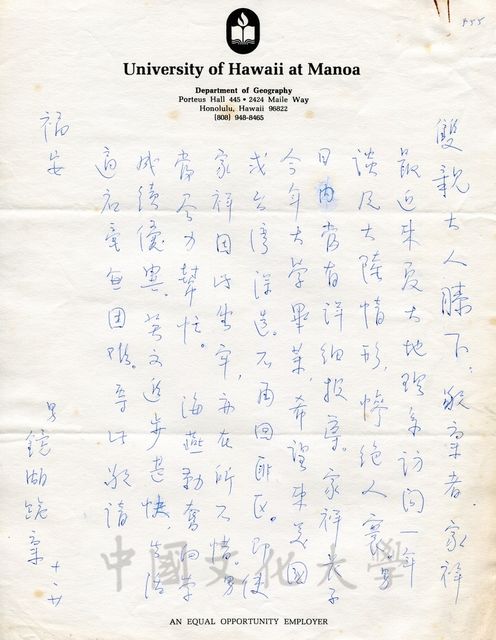 855
University of Hawaii at Manoa
Department of Geography
Porteus Hall 445 • 2424 Maile Way
Honolulu, Hawaii 96822
(808) 948-8465
雙親大人膝下，敬稟者家祥
最近來夏大地理系訪問一年
談及大陸情形，慘絕人寰。男
日內當有詳細報導。家祥長子
今年大學畢業，希望來美國
或台灣深造。不再回匪區。即使
家祥因此坐牢，亦在所不惜。男
當盡力幫忙。海燕勤奮向學
成績優異，英文進步甚快，生活
適和毫無困難。專此敬請
福安
男鏡湖跪稟 十、廿
中國文化大學
AN EQUAL OPPORTUNITY EMPLOYER